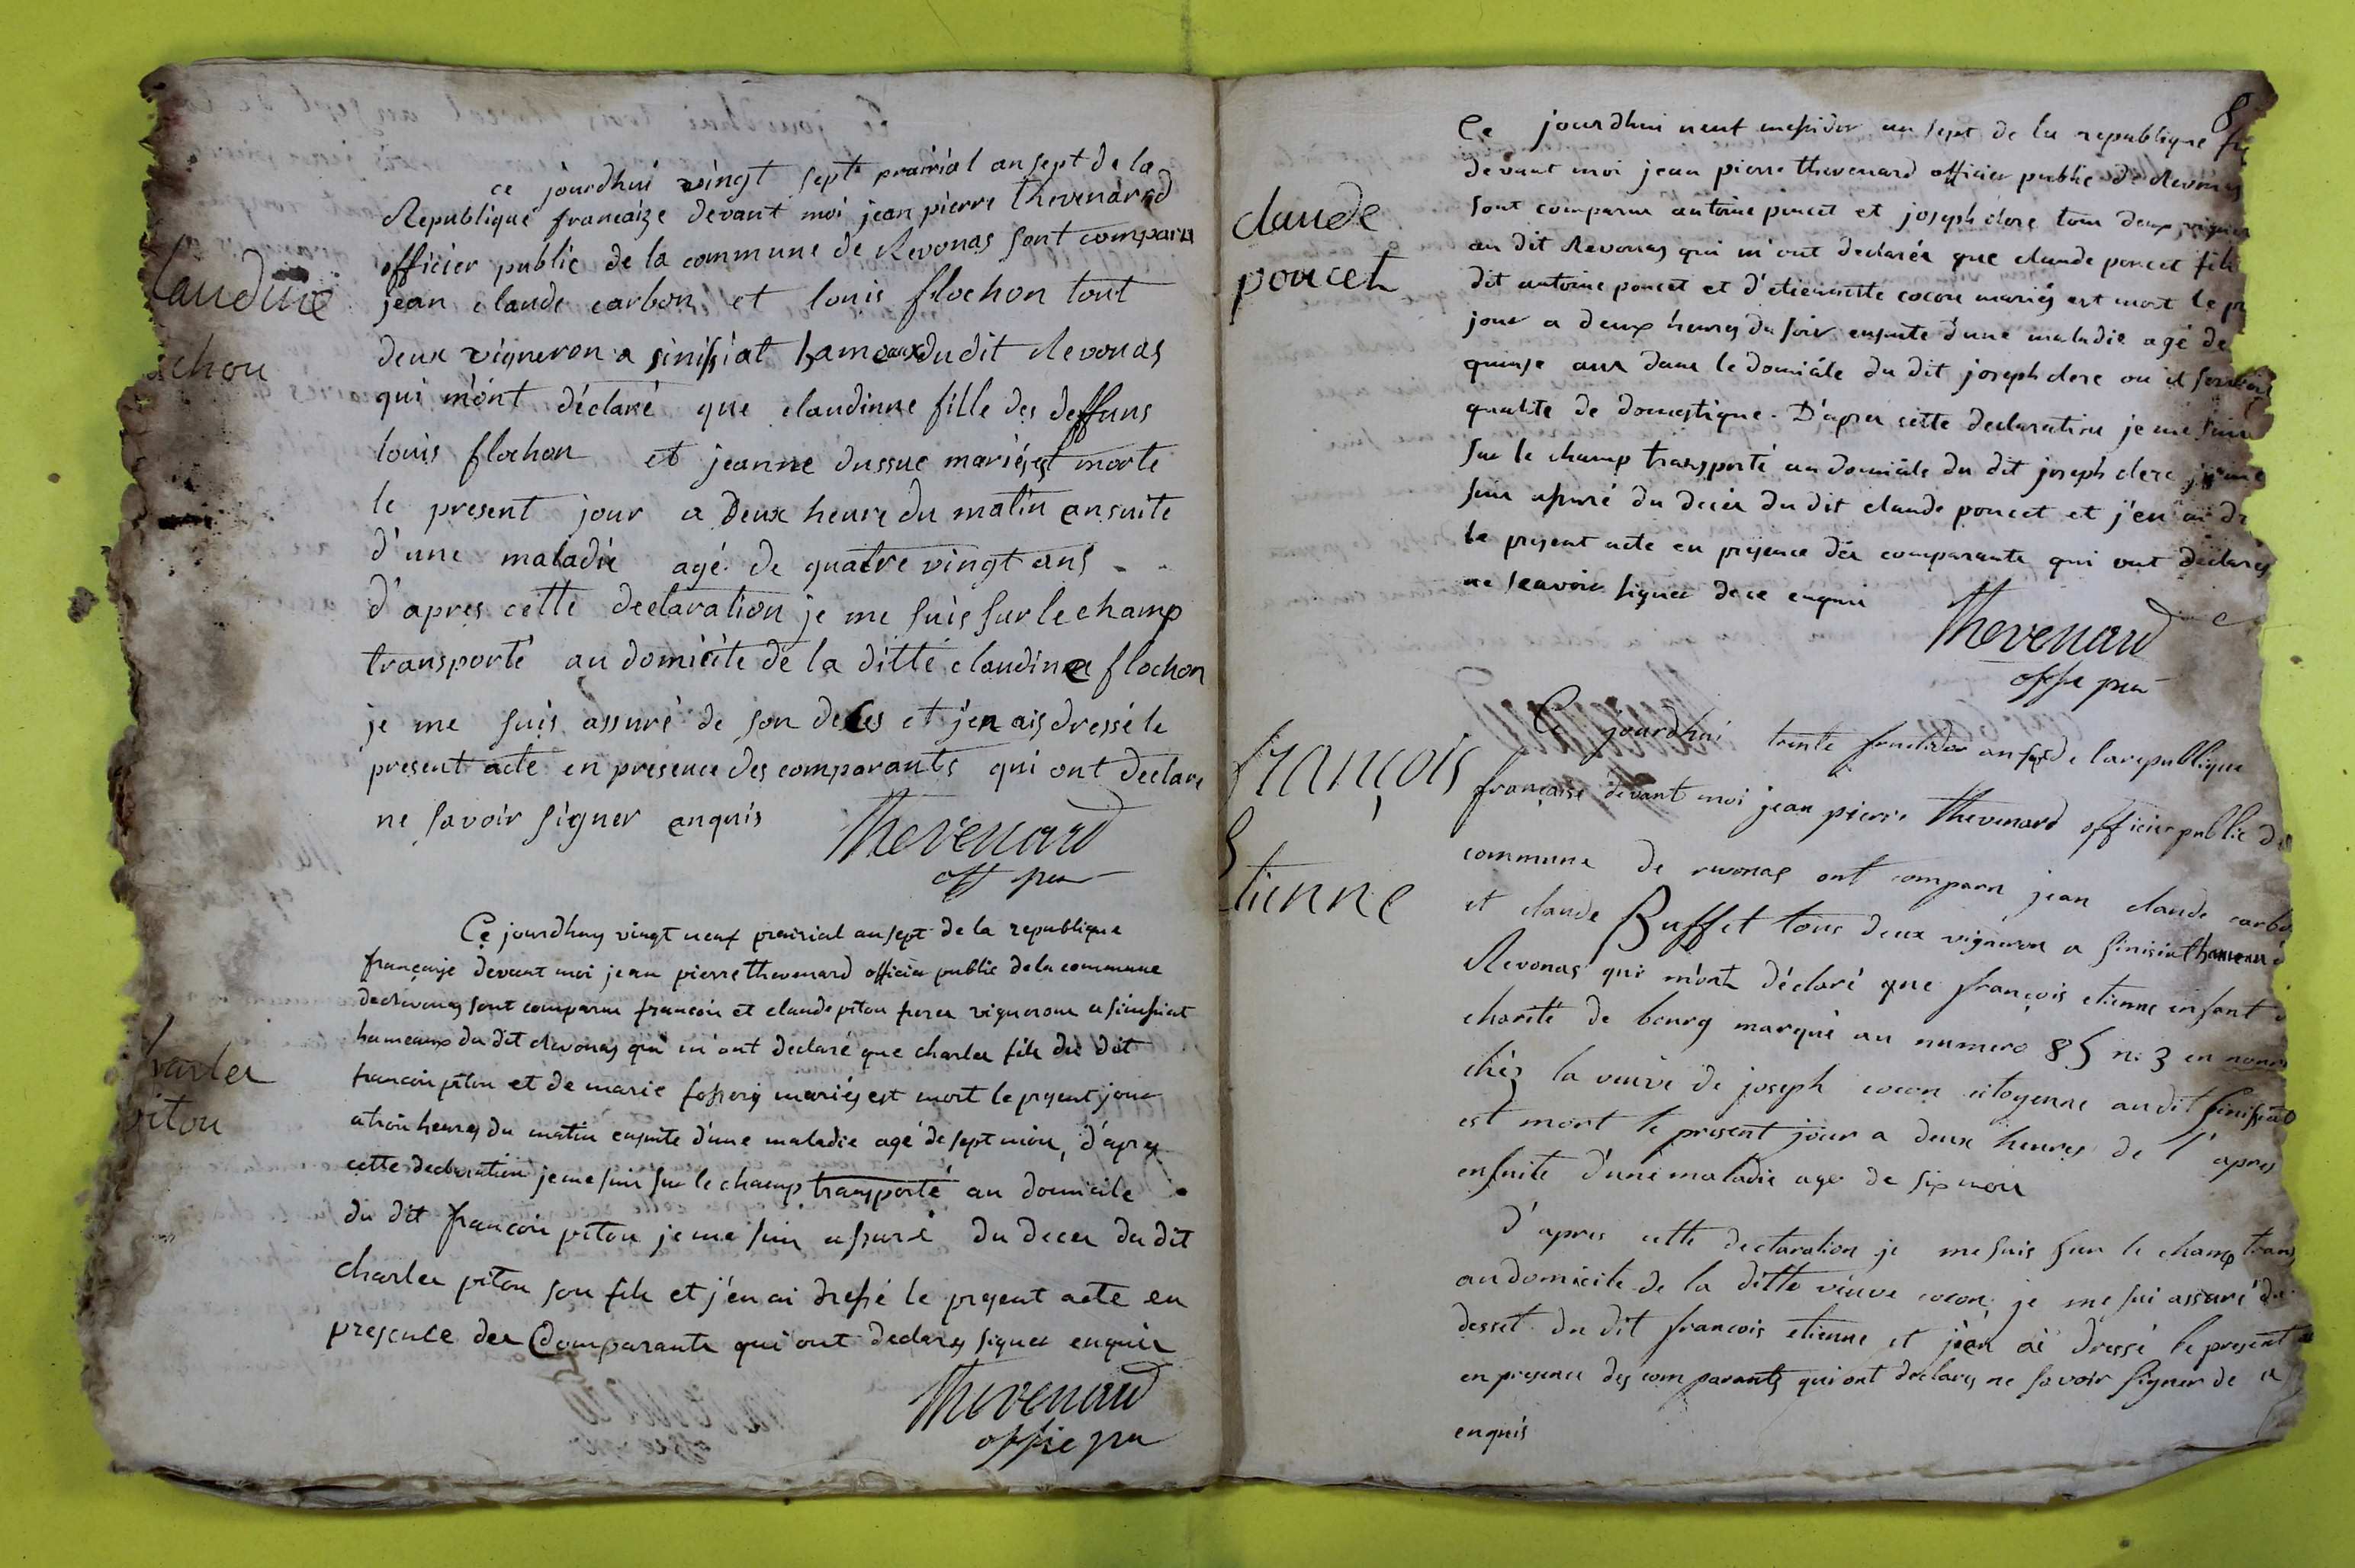 ce jourdhui vingt sept prairial an sept de la
Republique francaize devant moi jean pierre thevenard
officier public de la commune de Revonas sont comparu
jean claude carbon et louis flochon tout
deux vigneron a sinissiat hameaux du dit Revonas
qui m'ont déclaré que claudinne fille des deffuns
louis flochon et jeanne dussuc mariés est morte
le present jour a Deux heure du matin ensuite
d'une maladie agé de quatre vingt ans
d'apres cette declaration je me suis sur le champ
transporté au domicile de la ditte claudine flochon
je me suis assuré de son deces et j'en ais dressé le
present acte en presence des comparants qui ont declare
ne savoir signer enquis
Thevenard
off pu
laudine
chon
Ce jourdhuy vingt neuf prairial an sept de la republique
françaize devant moi jean pierre thevenard officier public de la commune
de Revonas sont comparus francois et claude piton freres vignerons a sinissiat
hameaux du dit Revonas qui m'ont declaré que charles fils du dit
francois piton et de marie mariés est mort le present jour
a trois heures du matin ensuite d'une maladie agé de sept mois, d'apres
cette declaration je me suis sur le champ transporté au domicile
du dit francois piton je me suis assuré du deces du dit
charles piton son fils et j'en ai dressé le present acte en
presence des Comparants qui ont declarés signer enquis
Thevenard
offie pu
harles
piton
8
Ce jourdhui neuf messidor an sept de la republique
devant moi jean pierre thevenard officier public de Revonas
sont comparus antoine poncet et joseph clerc tous deux
au dit Revonas qui m'ont declarés que claude poncet fils
dit antoine poncet et d'etiennette cocon mariés est mort le
jour a deux heures du soir ensuite d'une maladie agé de
quinse ans dans le domicile du dit joseph clerc ou il
qualite de domestique. D'apres cette declaration je me suis
sur le champ transporté au domicile du dit joseph clerc je me
suis assuré du deces du dit claude poncet et j'en ai
le present acte en presence des comparants qui ont declarés
ne scavoir signer de ce enquis
Thevenard
offe pu
claude
poncet
Ce jourdhui trente fructidor an sept de la republique
française devant moi jean pierre thevenard officier public de
commune de revonas ont comparu jean claude carbo
et claude Buffet tous deux vigneron a sinissiat hameau
Revonas qui m'ont déclaré que françois etienne enfant
charité de bourg marqué au numero 85 n: 3 en
chés la veuve de joseph cocon citoyenne au dit sinissiat
est mort le present jour a deux heures de l'apres
ensuite d'une maladie age de six mois
d'apres cette declaration je me suis sur le champ trans
au domicile de la ditte veuve cocon; je me sui assuré du
desset du dit francois etienne et j'en ai dressé le present
en presence des comparants qui ont declarés ne savoir signer de
enquis
françois
Etienne